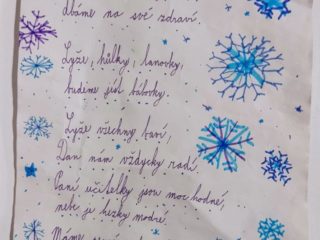 dbáme na své zdraví.
Lyže, hůlky, lanovky,
budeme jíst bábovky.
Lyže všechny baví,
Dan nám vždycky radí.
Paní učitelky jsou moc hodné,
nebe je hezky modré.
Máme